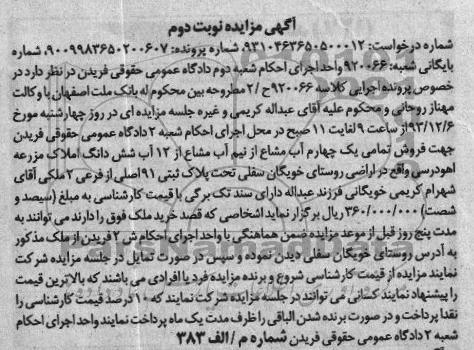 آگهی مزایده نوبت دوم
شماره درخواست: ۹۳۱۰۴۶۳۶۵۰۵۰۰۰۱۲، شماره پرونده: ۹۰۰۹۹۸۳۶۵۰۲۰۰۶۰۷، شماره
بایگانی شعبه: ۹۲۰۰۶۶ واحد اجرای احکام شعبه دوم دادگاه عمومی حقوقی فریدن در نظر دارد در
خصوص پرونده اجرایی کلاسه ۹۲۰۰۶۶ ح/۲ مطروحه بین محکوم له بانک ملت اصفهان با وکالت
مهناز روحانی و محکوم علیه آقای عبداله کریمی و غیره جلسه مزایده ای در روز چهارشنبه مورخ
۹۳/۱۲/۶ از ساعت ۹ لغایت ۱۱ صبح در محل اجرای احکام شعبه ۲ دادگاه عمومی حقوقی فریدن
جهت فروش تمامی یک چهارم آب مشاع از نیم آب مشاع از ۱۲ آب شش دانگ املاک مزرعه
اهودرسی واقع در اراضی روستای خویگان سفلی تحت پلاک ثبتی ۹۱ اصلی از فرعی ۲ ملکی آقای
شهرام کریمی خویگانی فرزند عبداله دارای سند تک برگی با قیمت کارشناسی به مبلغ (سیصد و
شصت) ۳۶۰/۰۰۰/۰۰۰ ریال برگزار نماید اشخاصی که قصد خرید ملک فوق را دارند می توانند به
مدت پنج روز قبل از موعد مزایده ضمن هماهنگی با واحد اجرای احکام ش ۲ فریدن از ملک مذکور
به آدرس روستای خویگان سفلی دیدن نموده و سپس در صورت تمایل در جلسه مزایده شرکت
نمایند مزایده از قیمت کارشناسی شروع و برنده مزایده فرد یا افرادی می باشند که بالاترین قیمت
را پیشنهاد نمایند کسانی می توانند در جلسه مزایده شرکت نمایند که ۱۰ درصد قیمت کارشناسی را
نقدا پرداخت و در صورت برنده شدن الباقی را ظرف مدت یک ماه پرداخت نمایند واحد اجرای احکام
شعبه ۲ دادگاه عمومی حقوقی فریدن شماره م/الف ۳۸۳